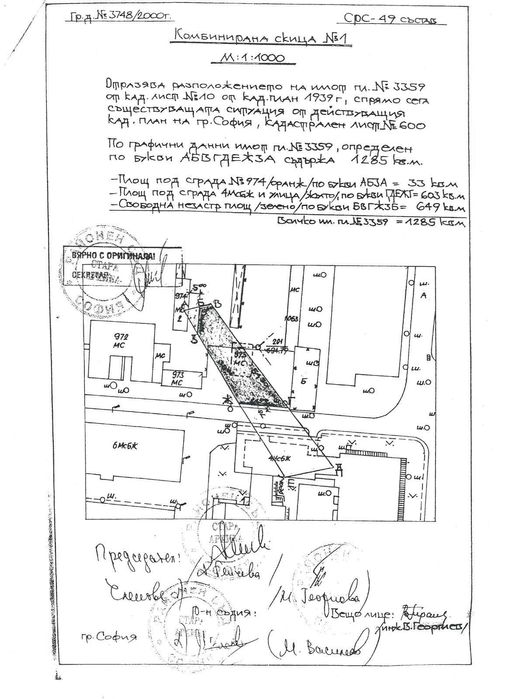 Гр.д. №3748/2000г.
СРС- 49 състав
Комбинирана скица №1
М:1:1000
Отразява разположението на имот пл.№ 3359
от кад. лист №10 от кад.план 1939г, спрямо сега
съществуващата ситуация от действуващия
кад. план на гр. София, кадастрален лист №600
По графични данни имот пл.№3359, определен
по букви АБВГДЕЖЗА съдържа 1285 кв.м.
-Площ под сграда №974/оранж/по букви АБЗА = 33 кв.м
-Площ под сграда 4МсБЖ и улица/жълто/по букви ГДЕЖГ=603 кв.м
-Свободна незастр площ/зелено/по букви БВГЖЗБ= 649 кв.м
Всичко им. пл.№3359 = 1285 кв.м
ВЯРНО С ОРИГИНАЛА!
СЕКРЕТАР
РАЙОНЕН
СТАРА
СОФИЯ
974
МС
2
В
З
972
МС
МС
973
МС
975
МС
201
Б
А
Г
Ж
6МсБЖ
4МсБЖ
Д
Е
СТАРА
Председател:
Членове
/М. Георгиева/
р-н съдия:
Вещо лице:
/инж.В.Георгиев/
гр.София